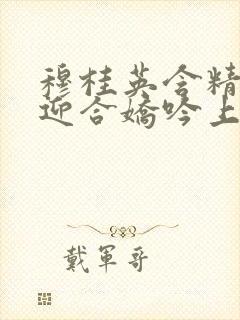 穆桂英含精
迎合娇吟上
戴軍哥